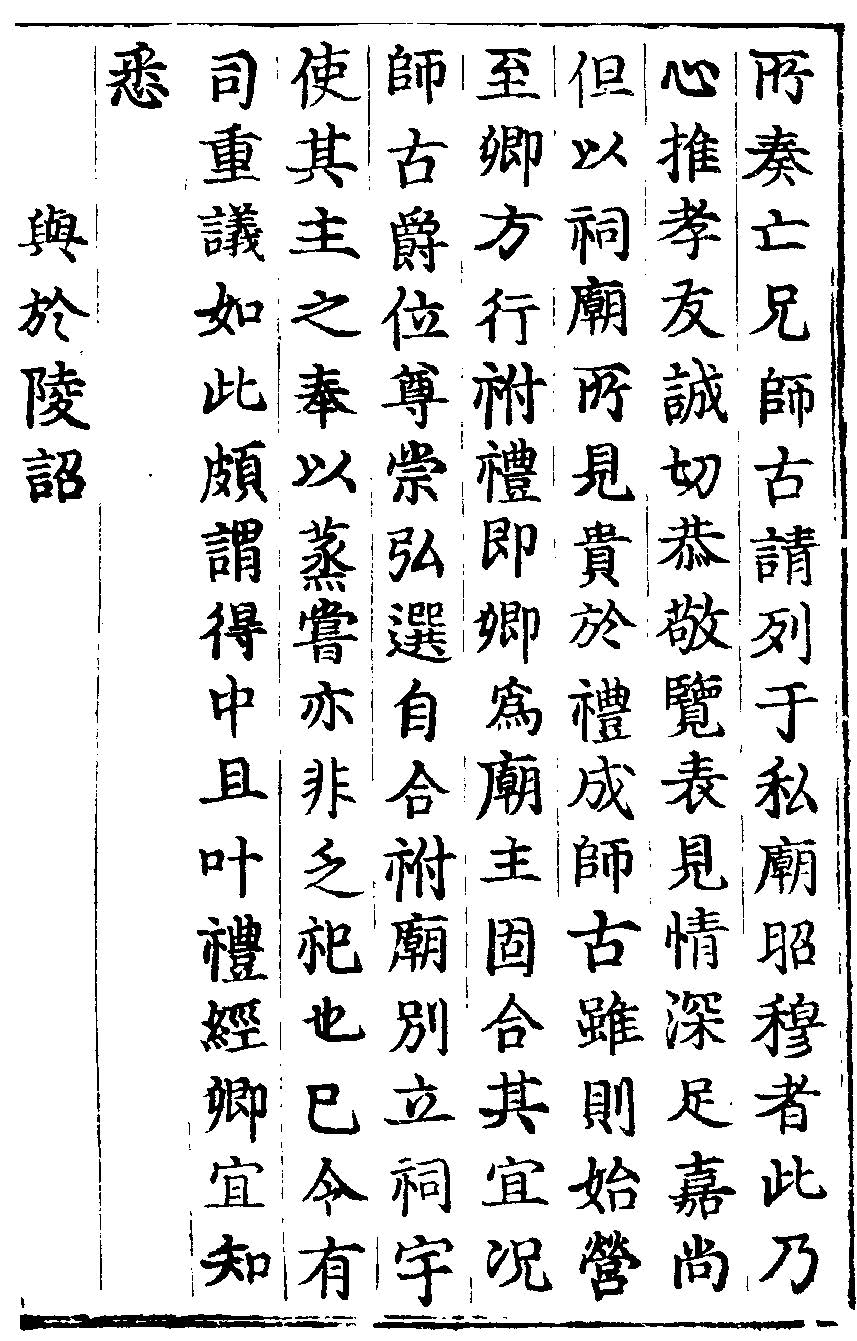 所奏亡兄師古請列于私廟昭穆者此乃
心推孝友誠切恭敬覽表見情深足嘉尚
但以祠廟所見貴於禮成師古雖則始營
至卿方行祔禮即卿為廟主固合其宜況
師古爵位尊崇弘選自合祔廟別立祠宇
使其主之奉以蒸嘗亦非乏祀也已令有
司重議如此頗謂得中且叶禮經卿宜知
悉
與於陵詔